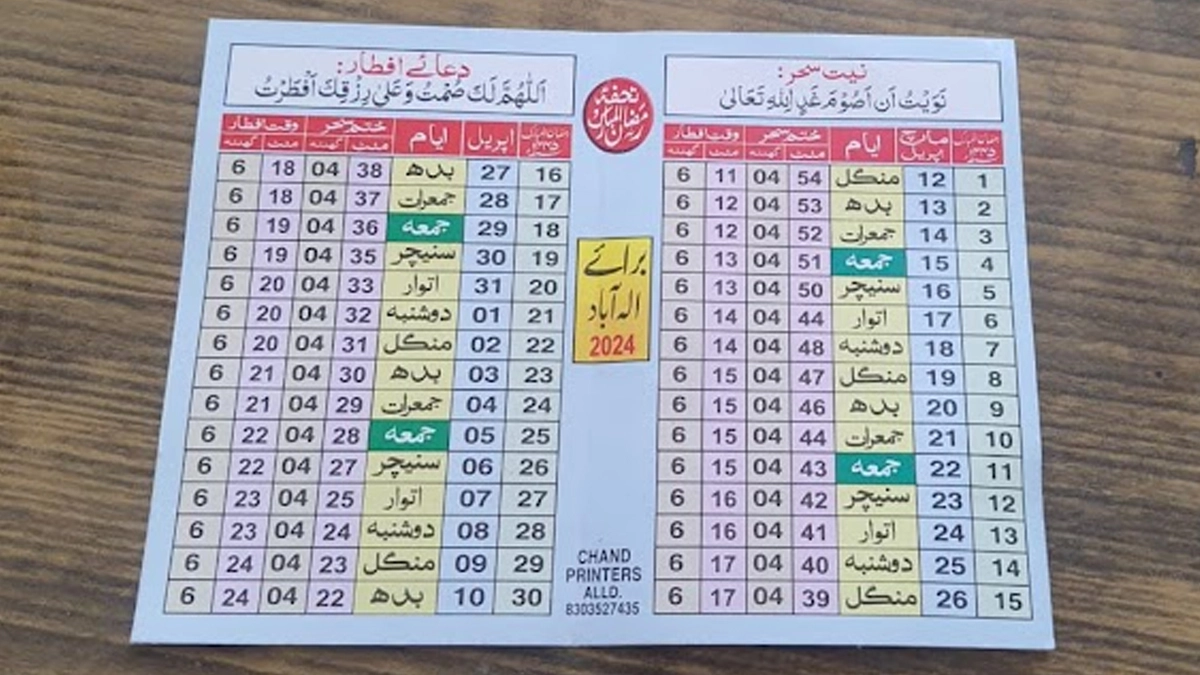 نیت سحر:
نَوَیْتُ اَن اَصُوْمَ غَدٍ لِلّٰهِ تَعَالٰی
مارچ ایام ختم سحر وقت افطار
اپریل منٹ گھنٹہ منٹ گھنٹہ
1 12 منگل 54 04 11 6
2 13 بدھ 53 04 12 6
3 14 جمعرات 52 04 12 6
4 15 جمعہ 51 04 13 6
5 16 سنیچر 50 04 13 6
6 17 اتوار 44 04 14 6
7 18 دوشنبہ 48 04 14 6
8 19 منگل 47 04 15 6
9 20 بدھ 46 04 15 6
10 21 جمعرات 44 04 15 6
11 22 جمعہ 43 04 15 6
12 23 سنیچر 42 04 16 6
13 24 اتوار 41 04 16 6
14 25 دوشنبہ 40 04 17 6
15 26 منگل 39 04 17 6
تحفۂ
رمضان المبارک
برائے
الہ آباد
2024
CHAND
PRINTERS
ALLD.
8303527435
دعائے افطار:
اَللّٰهُمَّ لَكَ صُمْتُ وَ عَلٰی رِزْقِكَ اَفْطَرْتُ
اپریل ایام ختم سحر وقت افطار
منٹ گھنٹہ منٹ گھنٹہ
16 27 بدھ 38 04 18 6
17 28 جمعرات 37 04 18 6
18 29 جمعہ 36 04 19 6
19 30 سنیچر 35 04 19 6
20 31 اتوار 33 04 20 6
21 01 دوشنبہ 32 04 20 6
22 02 منگل 31 04 20 6
23 03 بدھ 30 04 21 6
24 04 جمعرات 29 04 21 6
25 05 جمعہ 28 04 22 6
26 06 سنیچر 27 04 22 6
27 07 اتوار 25 04 23 6
28 08 دوشنبہ 24 04 23 6
29 09 منگل 23 04 24 6
30 10 بدھ 22 04 24 6